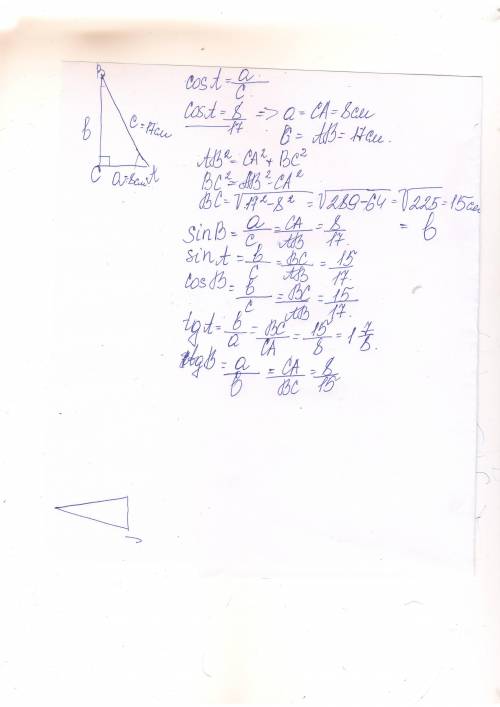 B
b
c=17см
C
a=8см A
cosA = a/c
cosA = 8/17 => a = CA = 8см
C = AB = 17см.
AB² = CA² + BC²
BC² = AB² - CA²
BC = √17² - 8² = √289-64 = √225 = 15см
= b
sinB = a/c = CA/AB = 8/17.
sinA = b/c = BC/AB = 15/17.
cosB = b/c = BC/AB = 15/17.
tgA = b/a = BC/CA = 15/8 = 1 7/8.
tgB = a/b = CA/BC = 8/15